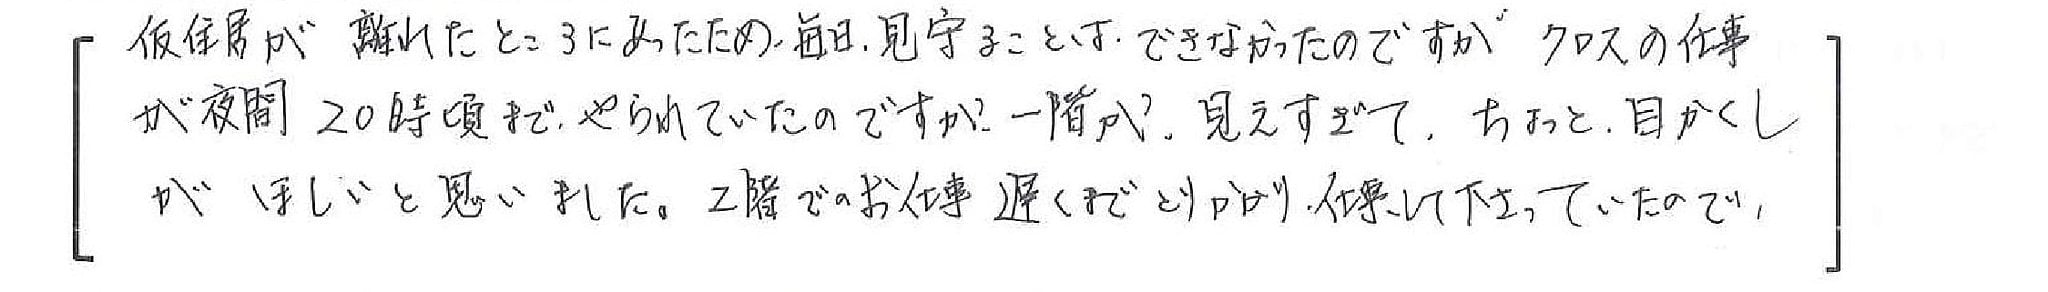 仮住居が 離れたところにあったため、毎日、見守ることは、できなかったのですが クロスの仕事
が夜間 20時頃まで、やられていたのですが、一階が、見えすぎて、ちょっと、目かくし
が ほしいと思いました。2階でのお仕事 遅くまでとりかかり、仕事して下さっていたので、